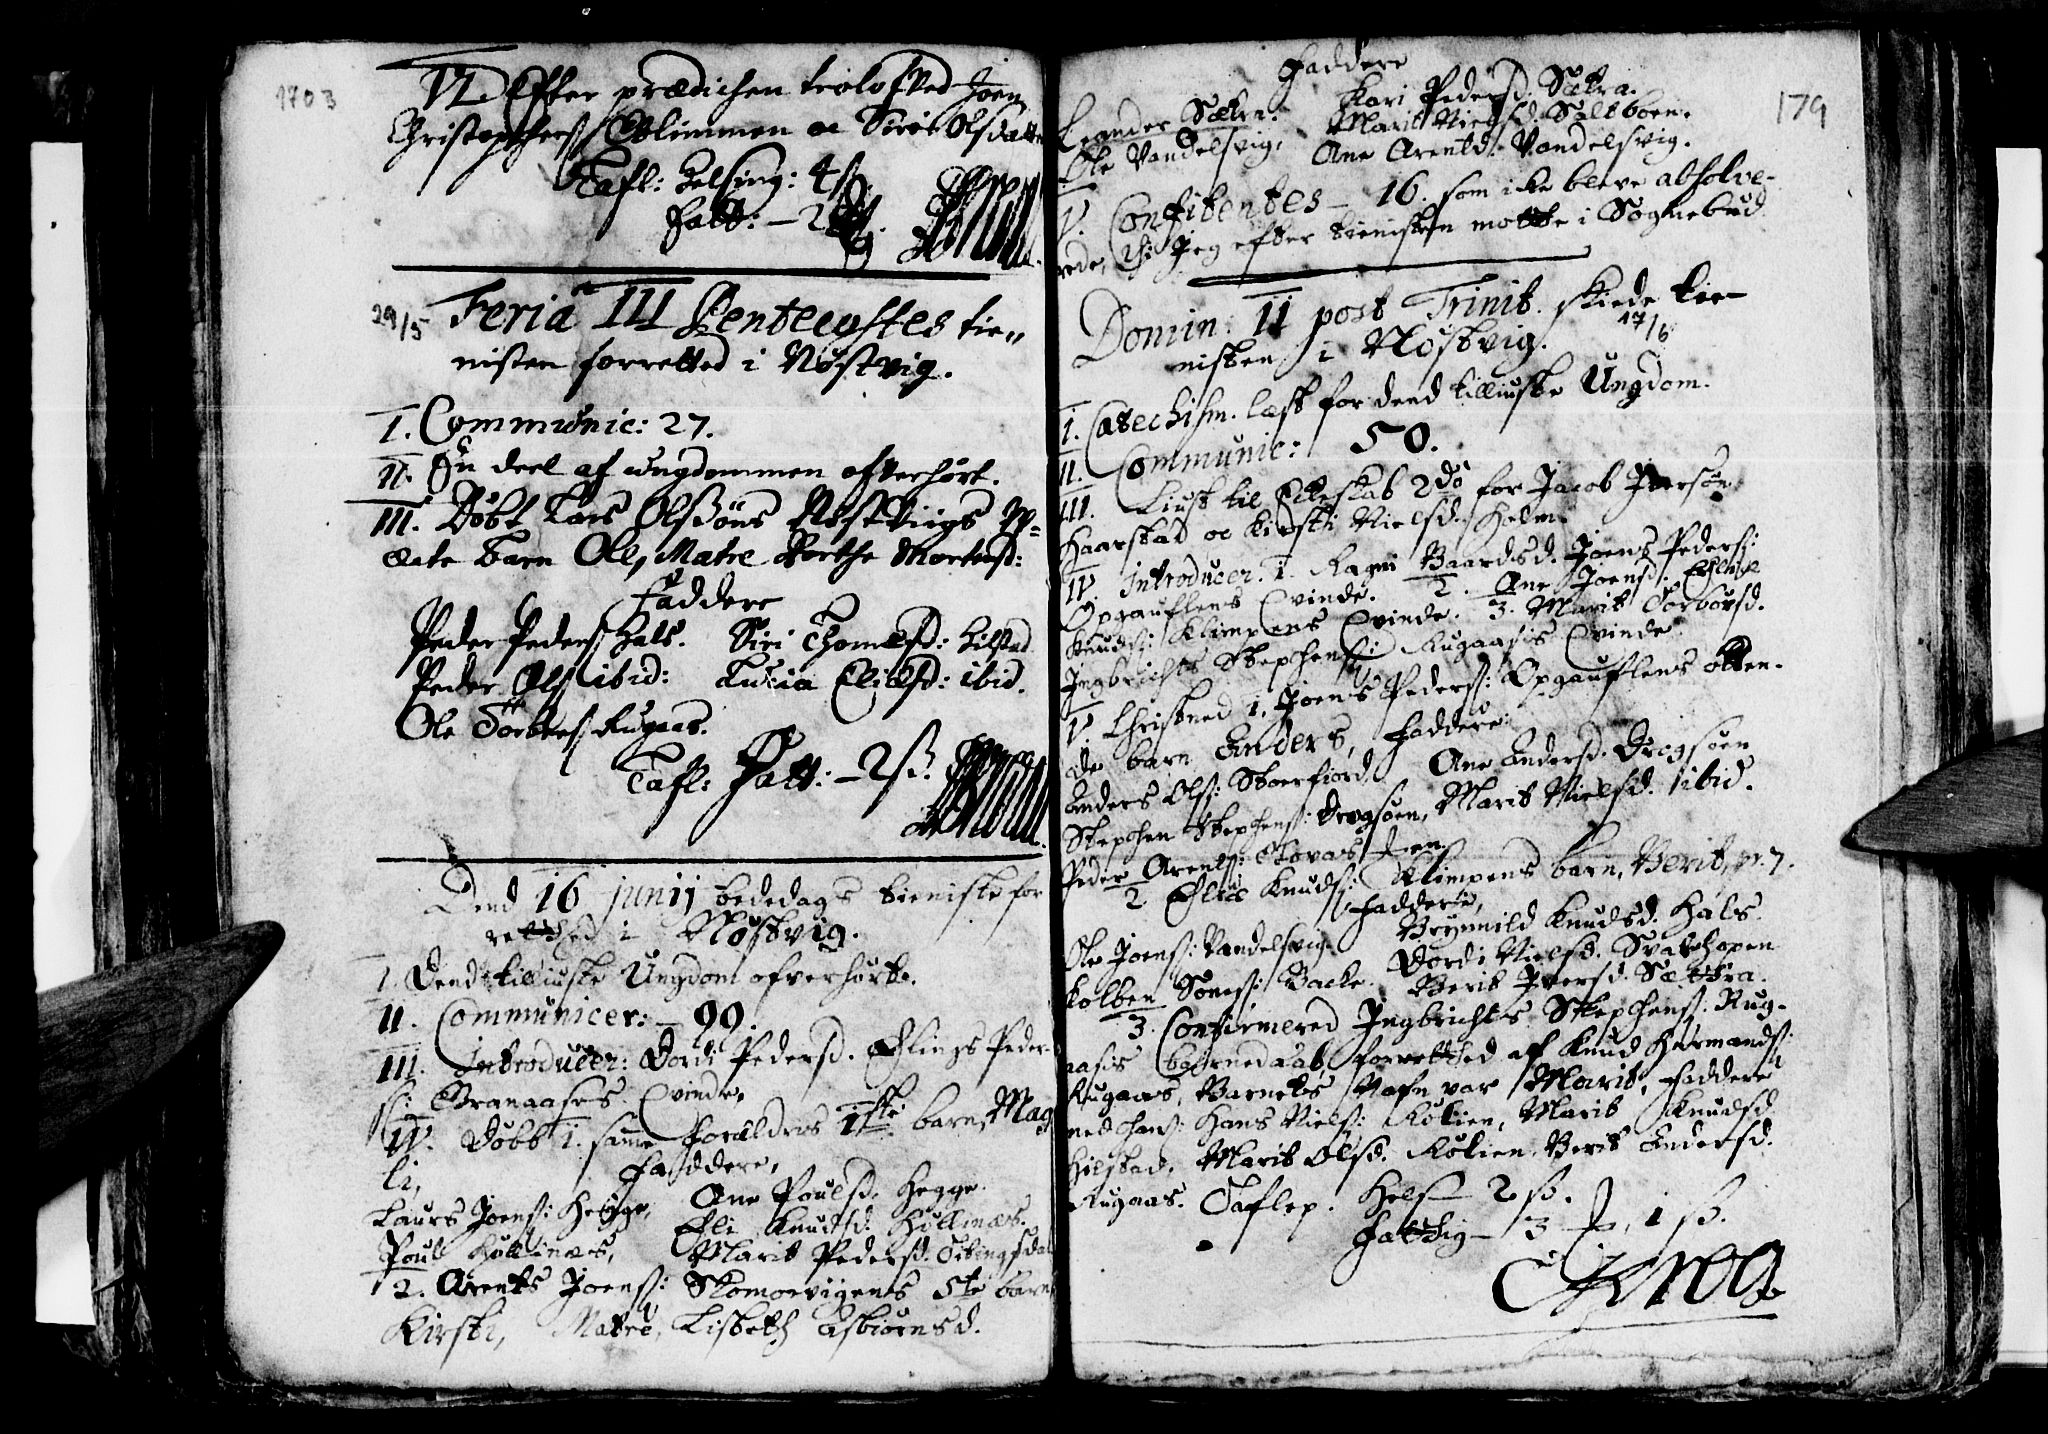 1703
VI. Efter prædichen trolofved Joen
Christophers. Glimmen oc Siri Olsdatter
Tafl: Helsing: 4 ß
Fatt: – 2 ß.
29/5 Feria III Pentecostes tie-
nisten forretted i Nøstvig.
I. Communic: 27.
II. En deel af ungdommen ofverhørt.
III. Døbt Lars Olssøns Nøstviigs
ækte barn Ole, Matre Berthe Mortensd:
Faddere
Peder Peders. Hals. Siri Thomæsd: Hilstad
Peder Ols. ibid: Lucia Eliæsd: ibid.
Ole Torbers. Rugaas.
Tafl: Fatt: – 2 ß.
Dend 16 junij bededags tieniste for
retthed i Nøstvig.
I. Dend tilliuste Ungdom ofverhørte.
II. Communicer: – 99.
III. Introducer: Dordi Pedersd. Erlings Peder-
s: Granaases Qvinde,
IV. Døbt 1. samme Foræld​res 1ste barn, Mag
li, Faddere,
Laurs Joens: Hegge, Ane Poulsd. Hegge.
Poul Hollinæs, Eli Knudsd. Hollinæs.
Marit Pedersd.
2. Arents Joens: Skomoevigens 5te barn
Kirsti, Matre, Lisbeth Asbiørnsd.
Faddere
179
Leander Sætra. Kari Pedersd. Sætra.
Ole Vandelsvig, Marit Nielsd. Saltboen.
Ane Arentsd. Vandelsvig.
V. Confitentes – 16. som icke bleve absolve-
rede, thi Jeg efter tienisten motte i Sognebud.
Domin. II post Trinit. skiede tie-
17/6
nisten i Nøstvig.
I. Catechism. læst for dend tilliuste Ungdom.
II. Communic: 50.
III. Liust til Ecteskab 2do for Jacob Iversøn
Haarstad oc Kirsti Nielsd. Helm.
IV. Introducer. 1. Ragni Baardsd. Joens Peders:
Opgauflens Qvinde. 2. Ane Joensd. Eline
Knuds: Klimpens Qvinde. 3. Marit Torbørsd.
Ingbrichts Stephens: Rugaasis Qvinde.
V. Christned 1. Joens Peders: Opgauflens otten-
de barn Anders, Faddere:
Anders Ols: Skoerfiord. Ane Andersd. Drogsøen
Stephen Stephens: Drogsøen, Marit Nielsd. ibid.
Peder Arents: Stovas
2. Knuds: Klimpens barn, Berit, nr. 7.
Faddere,
Ole Joens: Vandelsvig. Brynnild Knudsd. Hals.
Kolben Sønes: Backe. Dordi Nielsd. Svatthopen
Berit Iversd. Sættra.
3. Confirmered Ingbrichts Stephens. Rug-
aasis barnedaab, forretthed af Knud Harmands:
Rugaas, Barnets Nafn var Marit, Faddere
Hans Niels: Rokien, Marit Knudsd
Hilstad. Marit Olsd. Rokien. Berit Andersd.
Rugaas. Taflep. Hels 2 ß.
Fatthig – 3 1 ß.